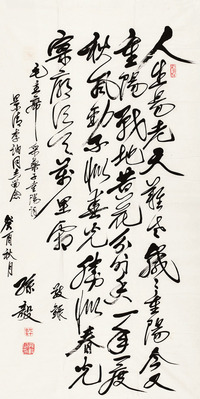 人生易老天难老岁岁重阳今又
重阳战地黄花分外香一年一度
秋风劲不似春光胜似春光
寥廓江天万里霜
毛主席采桑子重阳词
癸酉秋月
孙毅